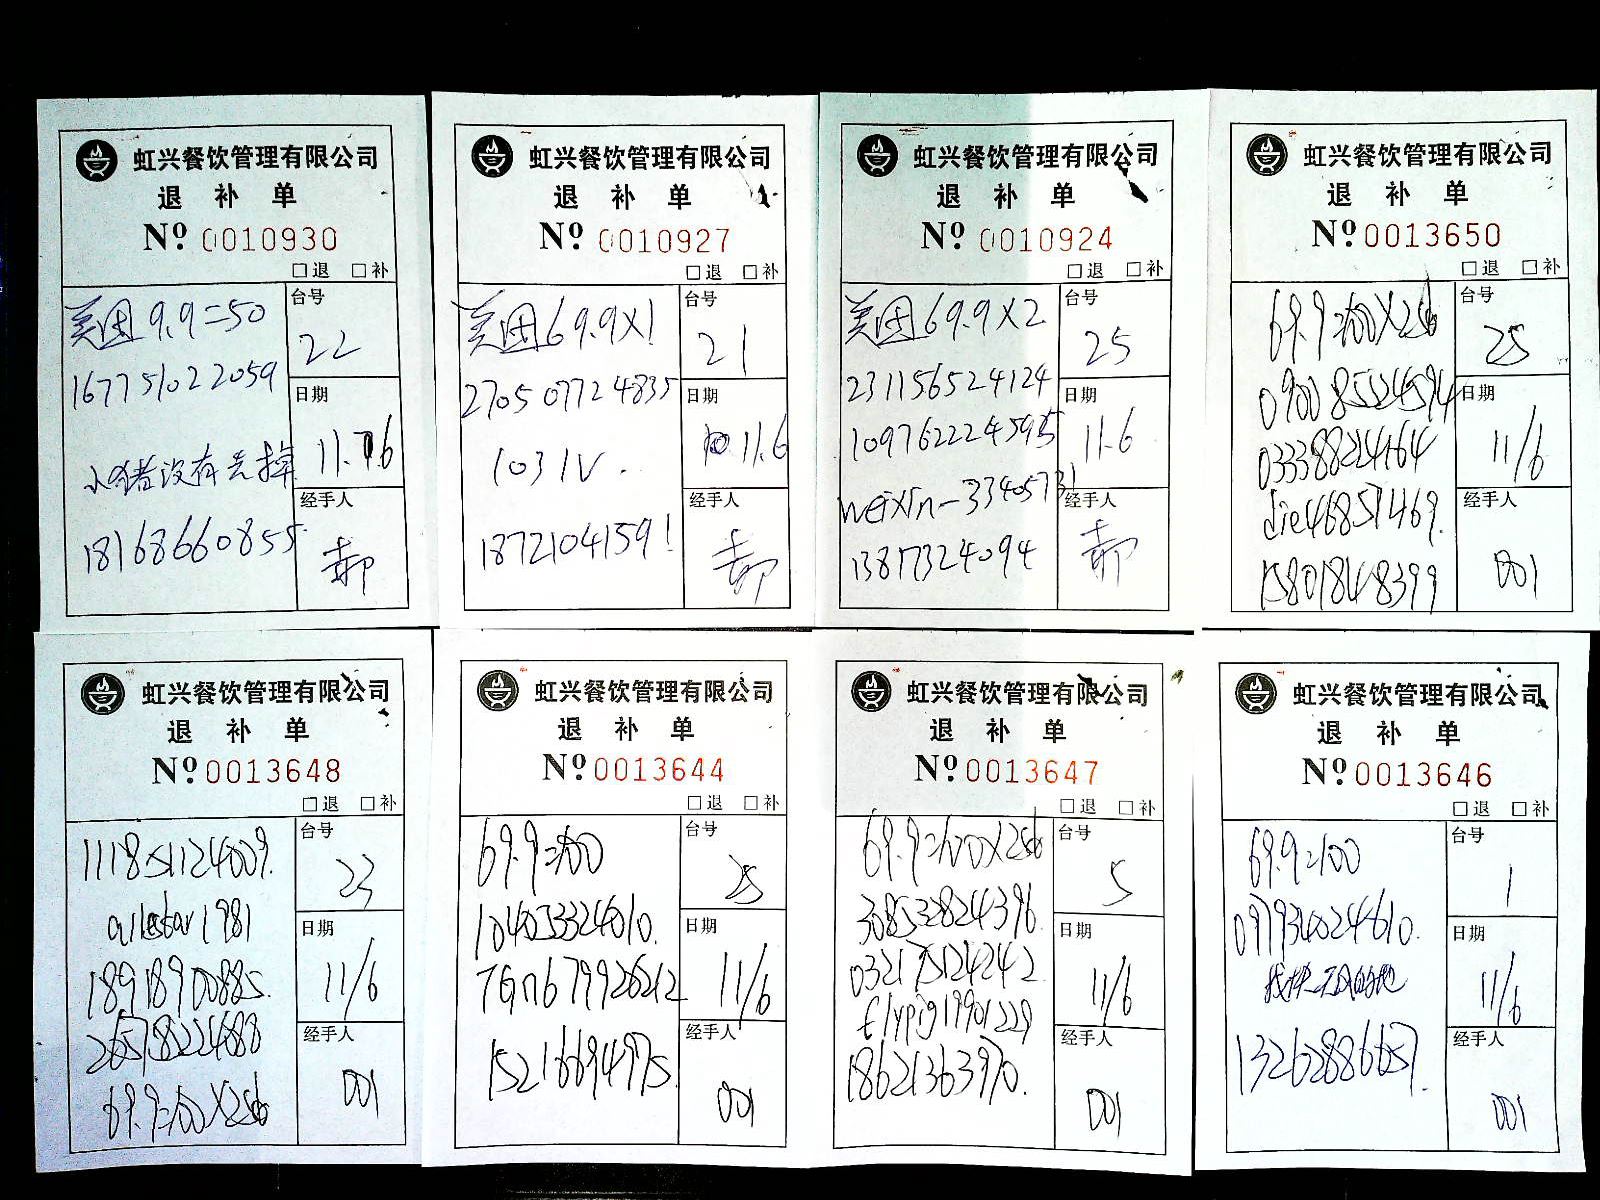 虹兴餐饮管理有限公司
退 补 单
Nº 0010930
□退 □补
美团 9.9=50
台号
22
167751022059
日期
11.6
小猪没有去掉
经手人
18168660855
郝
虹兴餐饮管理有限公司
退 补 单
Nº 0010927
□退 □补
美团 69.9X1
台号
21
270507724835
日期
11.6
1031V.
经手人
18721041591
郝
虹兴餐饮管理有限公司
退 补 单
Nº 0010924
□退 □补
美团 69.9X2
台号
25
231156524124
日期
109762224595
11.6
weixin-33405731
经手人
13817324094
郝
虹兴餐饮管理有限公司
退 补 单
Nº 0013650
□退 □补
69.9=100X2
台号
25
090085524594
日期
033388224164
11/6
die46851469.
经手人
15801848399
001
虹兴餐饮管理有限公司
退 补 单
Nº 0013648
□退 □补
111851124009.
台号
23
日期
18918900885.
11/6
265782224688
经手人
69.9=100X2
001
虹兴餐饮管理有限公司
退 补 单
Nº 0013644
□退 □补
69.9=100
台号
25
104053324010.
日期
TGn679926212
11/6
经手人
15216694975.
001
虹兴餐饮管理有限公司
退 补 单
Nº 0013647
□退 □补
69.9=100X2
台号
5
308532824396.
日期
032175124242.
11/6
flypig19901229
经手人
18621363970.
001
虹兴餐饮管理有限公司
退 补 单
Nº 0013646
□退 □补
69.9=100
台号
1
097934024610.
日期
11/6
经手人
13262886657.
001